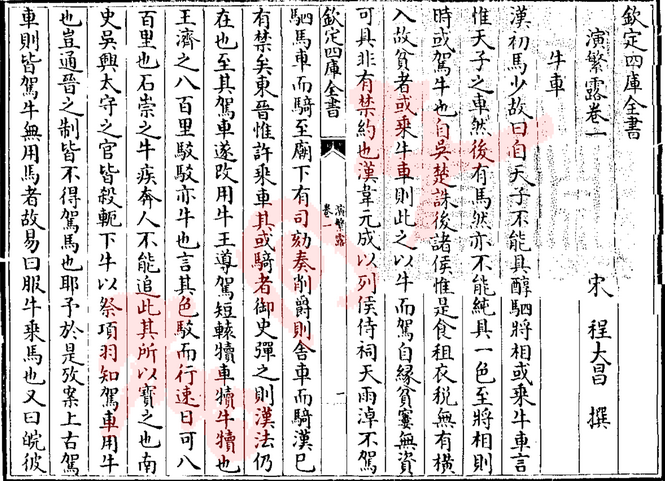 欽定四庫全書
演繁露卷一
宋 程大昌 撰
牛車
漢初馬少故曰自天子不能具醇駟將相或乘牛車言
惟天子之車然後有馬然亦不能純具一色至將相則
時或駕牛也自吳楚誅後諸侯惟是食租衣税無有橫
入故貧者或乘牛車則此之以牛而駕自緣貧窶無資
可具非有禁約也漢韋元成以列侯侍祠天雨淖不駕
欽定四庫全書
演繁露
卷一
一
駟馬車而騎至廟下有司劾奏削爵則舍車而騎漢已
有禁矣東晉惟許乘車其或騎者御史彈之則漢法仍
在也至其駕車遂改用牛王導駕短轅犢車犢牛犢也
王濟之八百里駮駮亦牛也言其色駮而行速日可八
百里也石崇之牛疾奔人不能追此其所以寶之也南
史吳興太守之官皆殺軛下牛以祭項羽知駕車用牛
也豈通晉之制皆不得駕馬也耶予於是攷案上古駕
車則皆駕牛無用馬者故易曰服牛乘馬也又曰皖彼